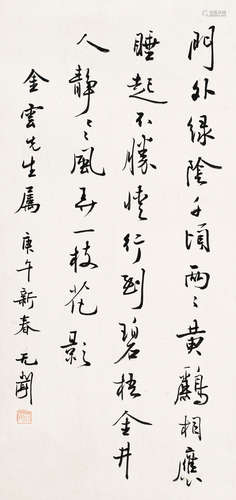 門外緑陰千頃兩〻黃鸝相應
睡起不勝情行到碧梧金井
人靜〻〻風弄一枝花影
金雲先生屬 庚午新春 无聞